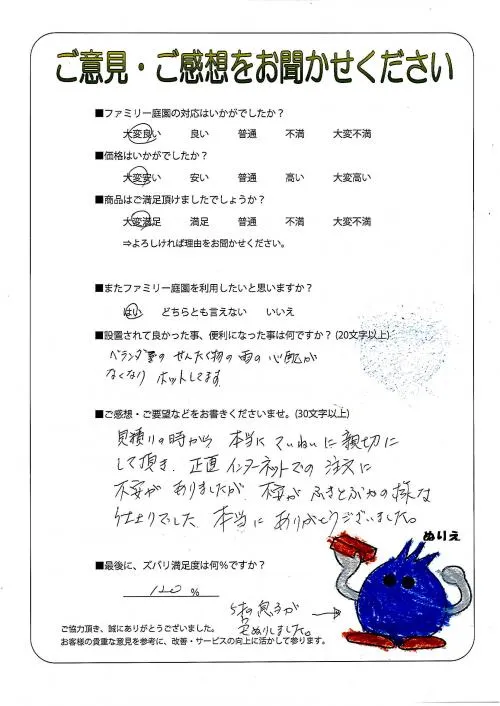 ご意見・ご感想をお聞かせください
■ファミリー庭園の対応はいかがでしたか?
大変良い 良い 普通 不満 大変不満
■価格はいかがでしたか?
大変安い 安い 普通 高い 大変高い
■商品はご満足頂けましたでしょうか?
大変満足 満足 普通 不満 大変不満
⇒よろしければ理由をお聞かせください。
■またファミリー庭園を利用したいと思いますか?
はい どちらとも言えない いいえ
■設置されて良かった事、便利になった事は何ですか?(20文字以上)
ベランダ のせんたく物の雨の心配が
なくなり ホットしてます
■ご感想・ご要望などをお書きくださいませ。(30文字以上)
見積りの時から 本当にていねいに親切に
して頂き、正直 インターネットでの注文に
不安がありましたが、不安がふきとぶかの様な
仕上りでした。本当にありがとうございました。
ぬりえ
■最後に、ズバリ満足度は何%ですか?
120 %
5才の息子が
ぬりしました。
ご協力頂き、誠にありがとうございました。
お客様の貴重な意見を参考に、改善・サービスの向上に活かして参ります。